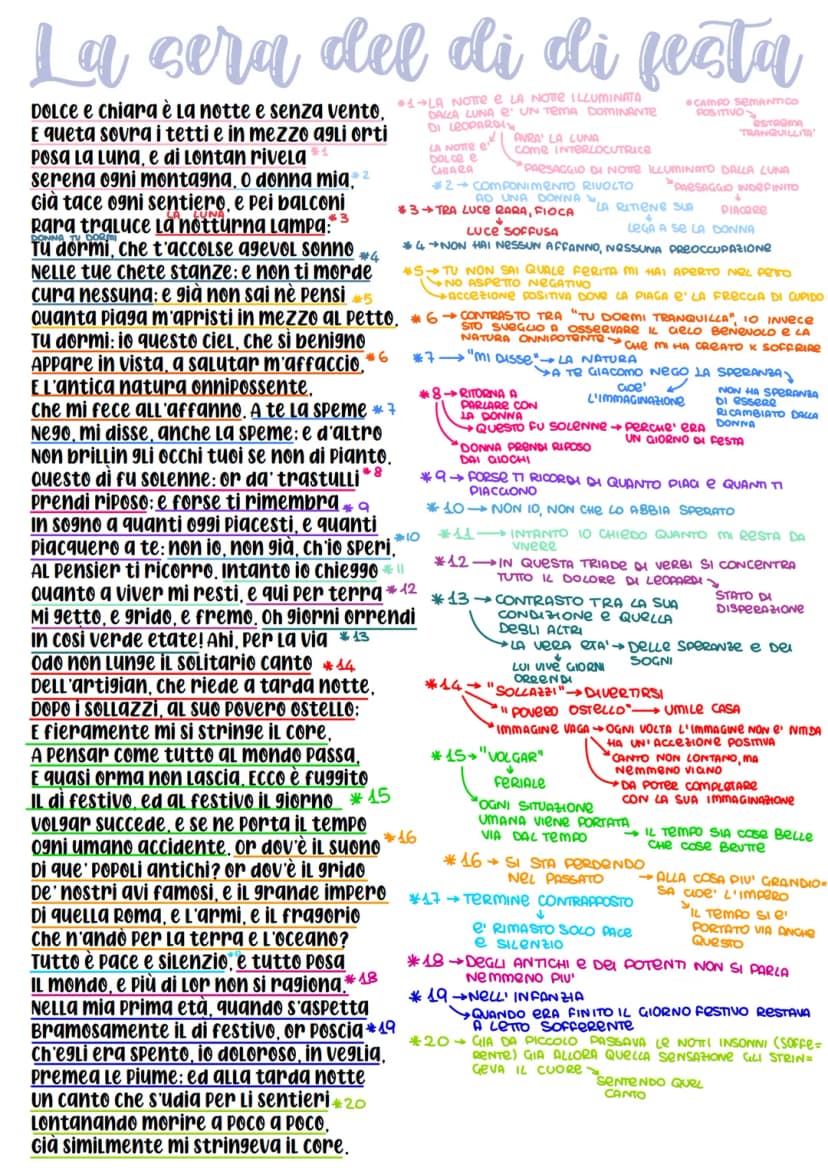 La sera del dì di festa
DOLCE e CHiara è La notte e senza vento,
E queta sovra i tetti e in mezzo agli orti
Posa La Luna, e di Lontan rivela *1
serena ogni montagna. O donna mia, *2
Già tace ogni sentiero, e pei balconi
LA LUNA
Rara traluce La notturna Lampa: *3
DONNA TU DORMI
Tu dormi, che t'accolse agevol sonno *4
Nelle tue chete stanze; e non ti morde
Cura nessuna; e già non sai nè pensi *5
Quanta piaga m'apristi in mezzo al petto.
Tu dormi: io questo ciel, che sì benigno
Appare in vista, a salutar m'affaccio, *6
E l'antica natura onnipossente,
Che mi fece all'affanno. A te la speme *7
Nego, mi disse, anche la speme; e d'altro
Non brillin gli occhi tuoi se non di pianto.
Questo dì fu solenne: or da' trastulli *8
Prendi riposo; e forse ti rimembra *9
In sogno a quanti oggi piacesti, e quanti
Piacquero a te: non io, non già, ch'io speri, *10
Al pensier ti ricorro. Intanto io chieggo *11
Quanto a viver mi resti, e qui per terra *12
Mi getto, e grido, e fremo. Oh giorni orrendi
In così verde etate! Ahi, per la via *13
Odo non lunge il solitario canto *14
Dell'artigian, che riede a tarda notte,
Dopo i sollazzi, al suo povero ostello;
E fieramente mi si stringe il core,
A pensar come tutto al mondo passa,
E quasi orma non lascia. Ecco è fuggito
Il dì festivo, ed al festivo il giorno *15
Volgar succede, e se ne porta il tempo
Ogni umano accidente. Or dov'è il suono *16
Di que' popoli antichi? or dov'è il grido
De' nostri avi famosi, e il grande impero
Di quella Roma, e l'armi, e il fragorio
Che n'andò per la terra e l'oceano?
Tutto è pace e silenzio, e tutto posa
Il mondo, e più di lor non si ragiona. *18
Nella mia prima età, quando s'aspetta
Bramosamente il dì festivo, or poscia *19
Ch'egli era spento, io doloroso, in veglia,
Premea le piume; ed alla tarda notte
Un canto che s'udia per li sentieri *20
Lontanando morire a poco a poco,
Già similmente mi stringeva il core.
*1 → LA NOTTE e LA NOTTE ILLUMINATA
DALLA LUNA E' UN TEMA DOMINANTE
DI LEOPARDI
LA NOTTE E'
DOLCE E
CHIARA
AVRA' LA LUNA
COME INTERLOCUTRICE
PAESAGGIO DI NOTTE ILLUMINATO DALLA LUNA
*CAMPO SEMANTICO
POSITIVO
ESTREMA
TRANQUILLITA'
PAESAGGIO INDEFINITO
PIACERE
*2 → COMPONIMENTO RIVOLTO
AD UNA DONNA
LA RITIENE SUA
LEGA A SE LA DONNA
*3 → TRA LUCE RARA, FIOCA
LUCE SOFFUSA
*4 → NON HAI NESSUN AFFANNO, NESSUNA PREOCCUPAZIONE
*5 → TU NON SAI QUALE FERITA MI HAI APERTO NEL PETTO
→ NO ASPETTO NEGATIVO
→ ACCEZIONE POSITIVA DOVE LA PIAGA E' LA FRECCIA DI CUPIDO
*6 → CONTRASTO TRA "TU DORMI TRANQUILLA", IO INVECE
STO SVEGLIO A OSSEERVARE IL CIELO BENEVOLO E LA
NATURA ONNIPOTENTE → CHE MI HA CREATO X SOFFRIRE
*7 → "MI DISSE" → LA NATURA
→ A TE GIACOMO NEGO LA SPERANZA
CIOE'
L'IMMAGINAZIONE
NON HA SPERANZA
DI ESSERE
RICAMBIATO DALLA
DONNA
*8 → RITORNA A
PARLARE CON
LA DONNA
→ QUESTO FU SOLENNE → PERCHE' ERA
UN GIORNO DI FESTA
DONNA PRENDI RIPOSO
DAI GIOCHI
*9 → FORSE TI RICORDI DI QUANTO PIACI E QUANTI TI
PIACCIONO
*10 → NON IO, NON CHE LO ABBIA SPERATO
*11 → INTANTO IO CHIEDO QUANTO MI RESTA DA
VIVERE
*12 → IN QUESTA TRIADE DI VERBI SI CONCENTRA
TUTTO IL DOLORE DI LEOPARDI
STATO DI
DISPERAZIONE
*13 → CONTRASTO TRA LA SUA
CONDIZIONE E QUELLA
DEGLI ALTRI
→ LA VERA ETA' → DELLE SPERANZE E DEI
SOGNI
LUI VIVE GIORNI
ORRENDI
*14 → "SOLLAZZI" → DIVERTIRSI
"POVERO OSTELLO" → UMILE CASA
IMMAGINE VAGA → OGNI VOLTA L'IMMAGINE NON E' NITIDA
HA UN'ACCEZIONE POSITIVA
CANTO NON LONTANO, MA
NEMMENO VICINO
DA POTER COMPLETARE
CON LA SUA IMMAGINAZIONE
*15 → "VOLGAR"
FERIALE
OGNI SITUAZIONE
UMANA VIENE PORTATA
VIA DAL TEMPO
→ IL TEMPO SIA COSE BELLE
CHE COSE BRUTTE
*16 → SI STA PERDENDO
NEL PASSATO
→ ALLA COSA PIU' GRANDIO=
SA CIOE' L'IMPERO
IL TEMPO SI E'
PORTATO VIA ANCHE
QUESTO
*17 → TERMINE CONTRAPPOSTO
E' RIMASTO SOLO PACE
E SILENZIO
*18 → DEGLI ANTICHI E DEI POTENTI NON SI PARLA
NEMMENO PIU'
*19 → NELL'INFANZIA
QUANDO ERA FINITO IL GIORNO FESTIVO RESTAVA
A LETTO SOFFERENTE
*20 → GIA DA PICCOLO PASSAVA LE NOTTI INSONNI (SOFFE=
RENTE) GIA ALLORA QUELLA SENSAZIONE GLI STRIN=
GEVA IL CUORE
SENTENDO QUEL
CANTO